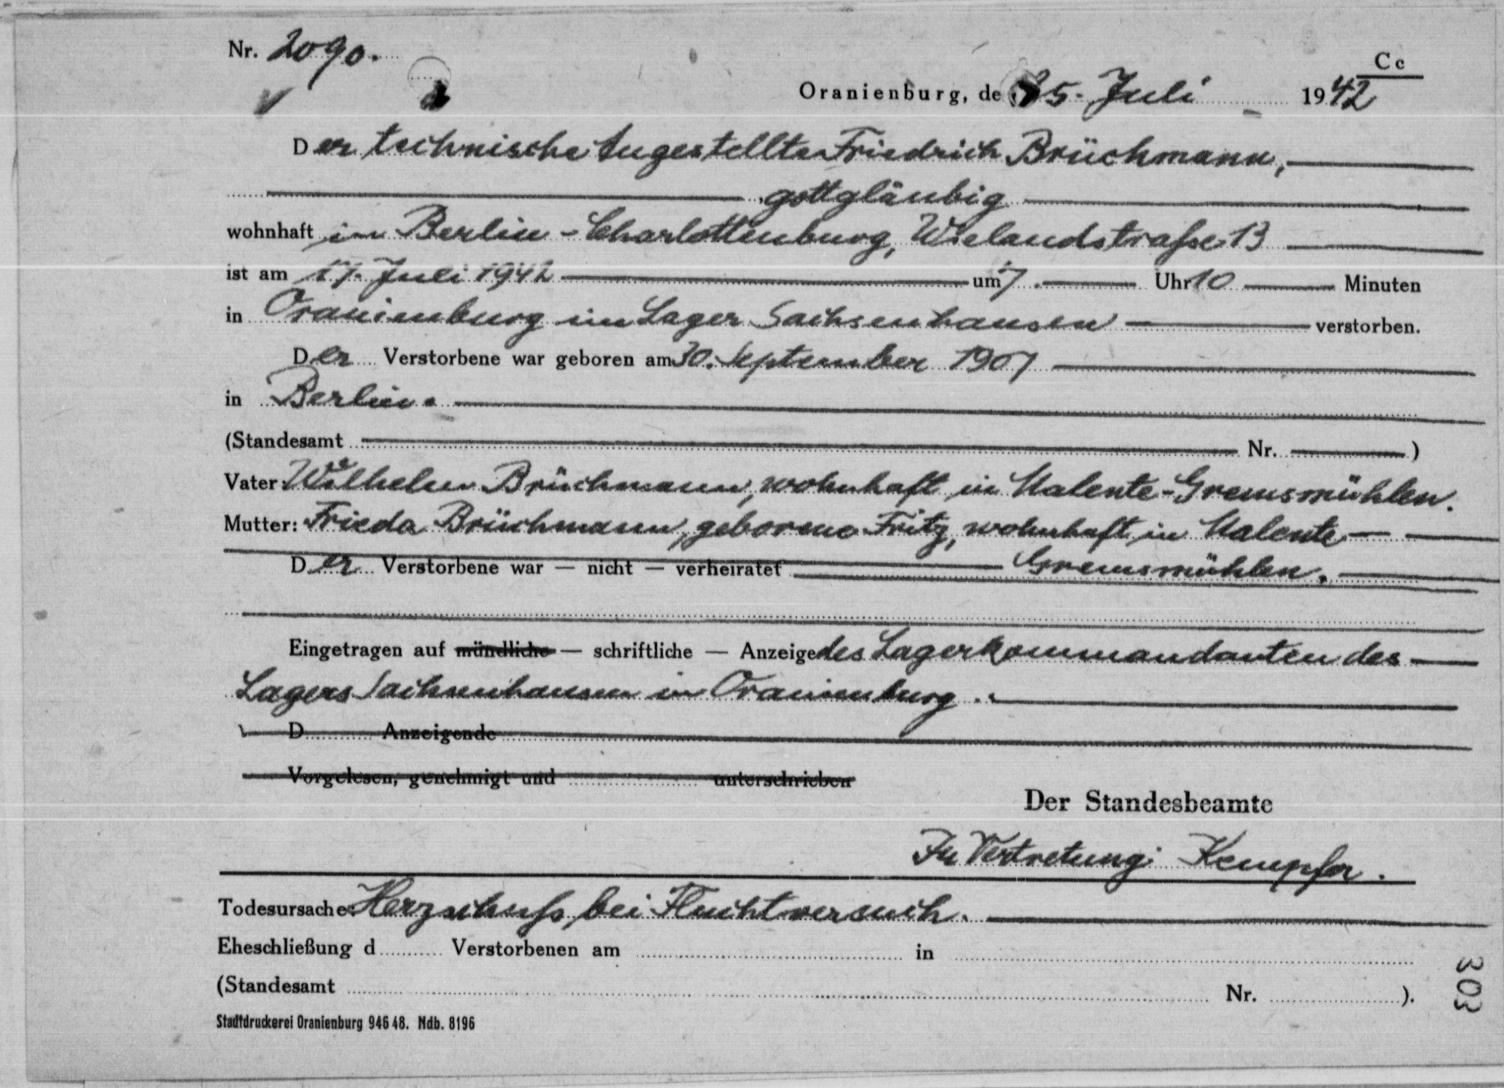 Nr. 2090.
Cc
Oranienburg, de 25. Juli 1942
Der technische Angestellte Friedrich Brüchmann,
gottgläubig
wohnhaft in Berlin-Charlottenburg, Wielandstraße 13
ist am 17. Juli 1942 um 7 Uhr 10 Minuten
in Oranienburg im Lager Sachsenhausen verstorben.
Der Verstorbene war geboren am 30. September 1907
in Berlin.
(Standesamt Nr. )
Vater: Wilhelm Brüchmann, wohnhaft in Malente-Gremsmühlen.
Mutter: Frieda Brüchmann, geborene Fritz, wohnhaft in Malente-
Der Verstorbene war — nicht — verheiratet Gremsmühlen.
Eingetragen auf mündliche — schriftliche — Anzeige des Lagerkommandanten des
Lagers Sachsenhausen in Oranienburg.
D Anzeigende
Vorgelesen, genehmigt und unterschrieben
Der Standesbeamte
In Vertretung: Kempfer.
Todesursache: Herzschuß, bei Fluchtversuch.
Eheschließung d Verstorbenen am in
(Standesamt Nr. ).
303
Stadtdruckerei Oranienburg 946 48. Ndb. 8196